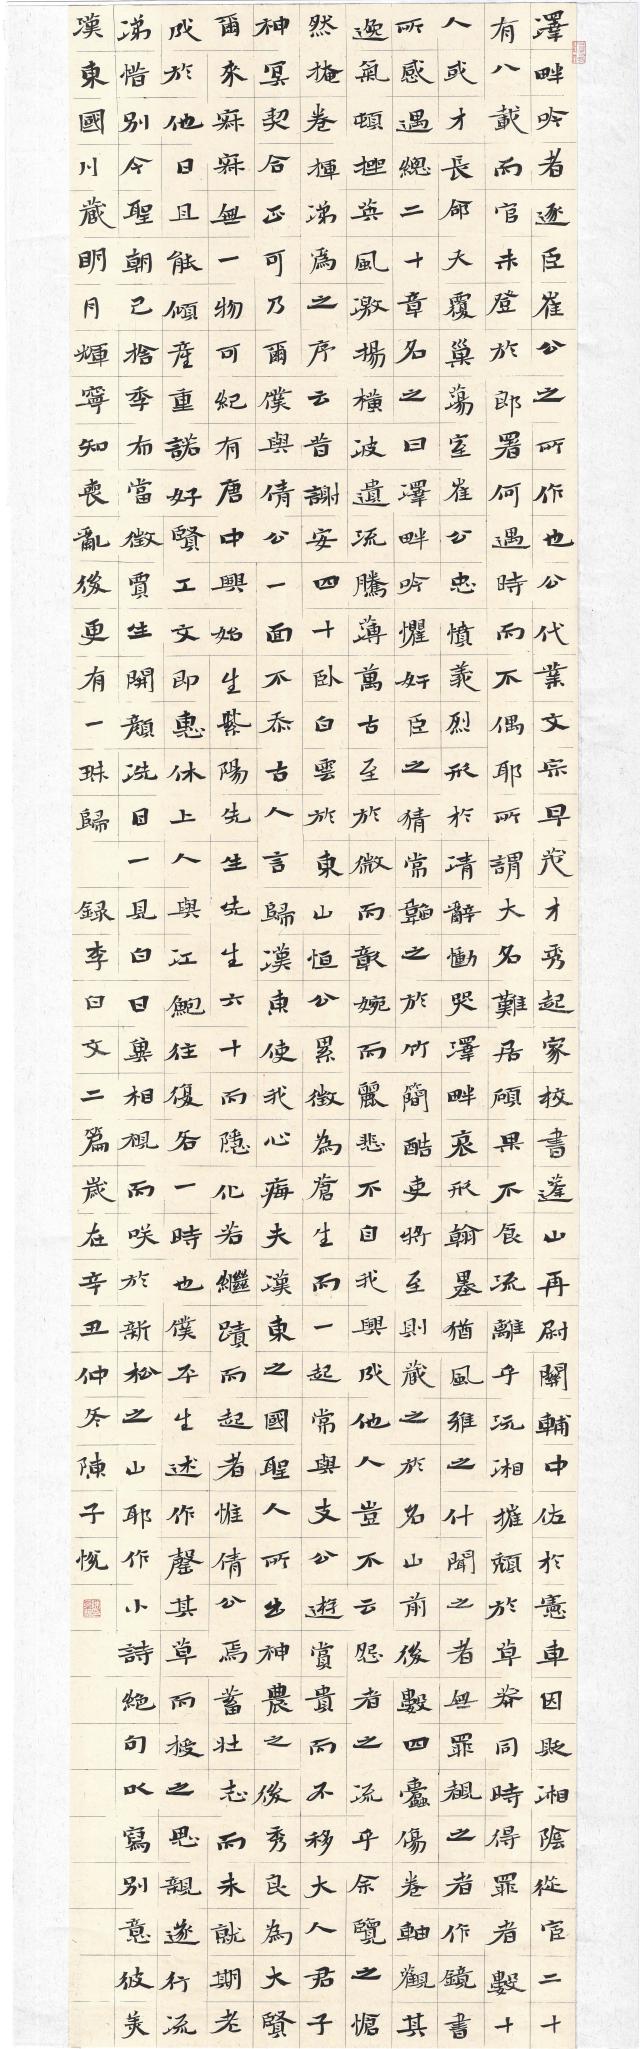 澤畔吟者逐臣崔公之所作也公代業文宗早茂才秀起家校書蓬山再尉關輔中佐於憲車因貶湘陰從宦二十
有八載而官未登於郎署何遇時而不偶耶所謂大名難居碩果不食流離乎沅湘摧頹於草莽同時得罪者數十
人或才長命夭覆巢蕩室崔公忠憤義烈形於清辭慟哭澤畔哀形翰墨猶風雅之什聞之者無罪覩之者作鏡書
所感遇總二十章名之曰澤畔吟懼奸臣之猜常韜之於竹簡酷吏將至則藏之於名山前後數四蠹傷卷軸觀其
逸氣頓挫英風激揚橫波遺流騰薄萬古至於微而彰婉而麗悲不自我興成他人豈不云怨者之流乎余覽之愴
然掩卷揮涕為之序云昔謝安四十臥白雲於東山恒公累徵為蒼生而一起常與支公遊賞貴而不移大人君子
神冥契合正可乃爾僕與倩公一面不忝古人言歸漢東使我心痗夫漢東之國聖人所出神農之後秀良為大賢
爾來寂寂無一物可紀有唐中興始生紫陽先生先生六十而隱化若繼蹟而起者惟倩公焉蓄壯志而未就期老
成於他日且能傾產重諾好賢工文即惠休上人與江鮑往復各一時也僕平生述作罄其草而授之思親遂行流
涕惜別今聖朝已捨季布當徵賈生開顏洗目一見白日冀相視而咲於新松之山耶作小詩絕句以寫別意彼美
漢東國川藏明月輝寧知喪亂後更有一珠歸 錄李白文二篇歲在辛丑仲冬陳子悅